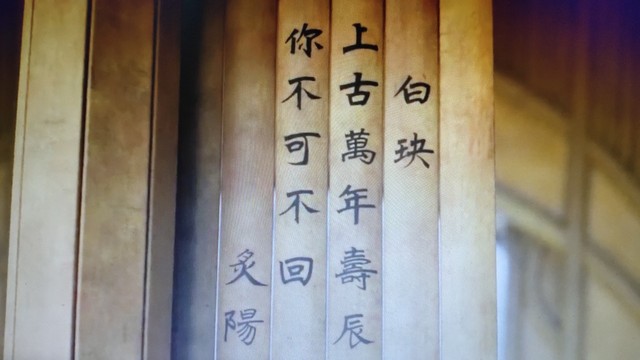 白玦
上古萬年壽辰
你不可不回
炙陽